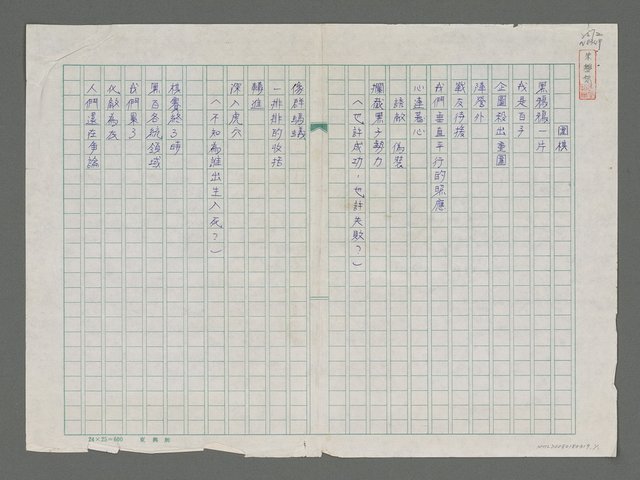 圍棋
黑鴉鴉一片
我是白子
企圖殺出重圍
陣營外
戰友待援
我們垂直平行的照應
心連著心
誘敵 偽裝
攔截黑子勢力
(也許成功,也許失敗?)
像群螞蟻
一排排的收拾
轉進
深入虎穴
(不知為誰出生入死?)
棋賽終了時
黑白各統領域
我們累了
化敵為友
人們還在爭論
24×25=600